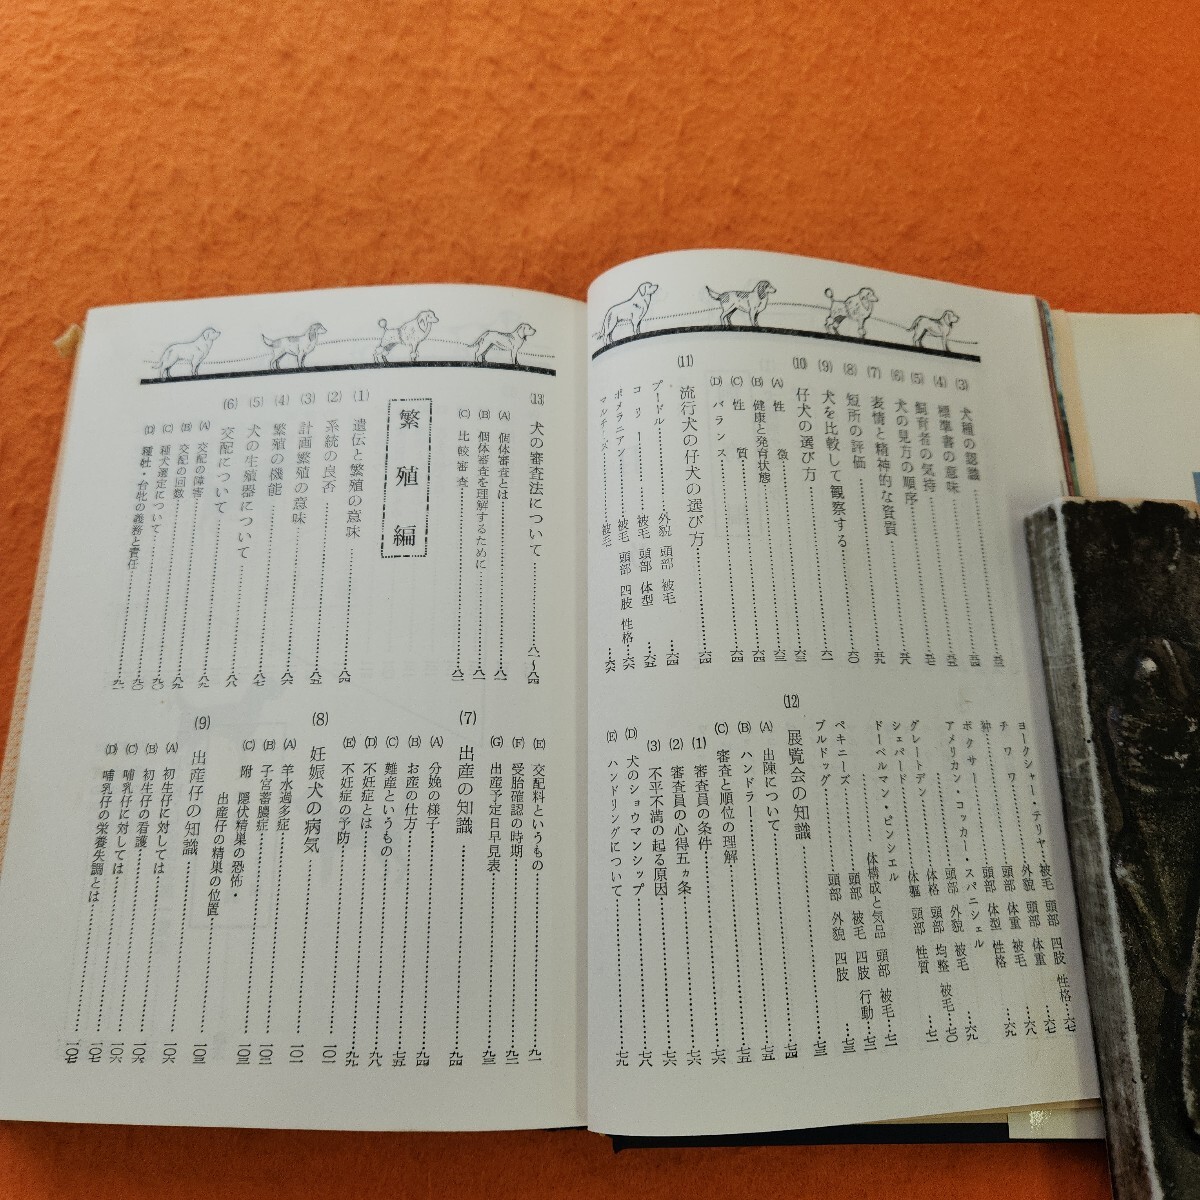 (3) 犬種の認識……五三
(4) 標準書の意味……五四
(5) 飼育者の気持……五七
(6) 犬の見方の順序……五八
(7) 表情と精神的な資質……五九
(8) 短所の評価……六〇
(9) 犬を比較して観察する……六一
(10) 仔犬の選び方……六三
(A) 性徴……六三
(B) 健康と発育状態……六四
(C) 性質……六四
(D) バランス……六四
(11) 流行犬の仔犬の選び方……六四
プードル……外貌 頭部 被毛……六四
コリー……被毛 頭部 体型……六五
ポメラニアン……被毛 頭部 四肢 性格……六六
マルチーズ……被毛……六六
ヨークシャー・テリヤ…被毛 頭部 四肢 性格…六七
チワワ……外貌 頭部 体重……六七
狆……頭部 体重 被毛……六八
ボクサー……頭部 体型 性格……六九
アメリカン・コッカー・スパニシェル
頭部 外貌 被毛……六九
グレートデン……体格 頭部 均整 被毛…七〇
シェパード……体軀 頭部 性質……七一
ドーベルマン・ピンシェル
……体構成と気品 頭部 被毛…七一
ペキニーズ……頭部 被毛 四肢 行動…七二
ブルドッグ……頭部 外貌 四肢……七三
(12) 展覧会の知識……七四
(A) 出陳について……七五
(B) ハンドラー……七五
(C) 審査と順位の理解……七六
(1) 審査員の条件……七六
(2) 審査員の心得五ヵ条……七六
(3) 不平不満の起る原因……七七
(D) 犬のショウマンシップ……七八
(E) ハンドリングについて……七九
(13) 犬の審査法について……八一〜八四
(A) 個体審査とは……八一
(B) 個体審査を理解するために……八一
(C) 比較審査……八二
繁殖編
(1) 遺伝と繁殖の意味……八四
(2) 系統の良否……八五
(3) 計画繁殖の意味……八五
(4) 繁殖の機能……八六
(5) 犬の生殖器について……八七
(6) 交配について……八八
(A) 交配の障害……八九
(B) 交配の回数……八九
(C) 種犬選定について……九〇
(D) 種牡・台牝の義務と責任……九一
(E) 交配料というもの……九一
(F) 受胎確認の時期……九二
(G) 出産予定日早見表……九三
(7) 出産の知識……九四
(A) 分娩の様子……九四
(B) お産の仕方……九四
(C) 難産というもの……九五
(D) 不妊症とは……九八
(E) 不妊症の予防……九九
(8) 妊娠犬の病気……一〇一
(A) 羊水過多症……一〇一
(B) 子宮蓄膿症……一〇二
(C) 附 隠伏精巣の恐怖・
出産仔の精巣の位置……一〇三
(9) 出産仔の知識……一〇三
(A) 初生仔に対しては……一〇六
(B) 初生仔の看護……一〇六
(C) 哺乳仔に対しては……一〇六
(D) 哺乳仔の栄養失調とは……一〇七